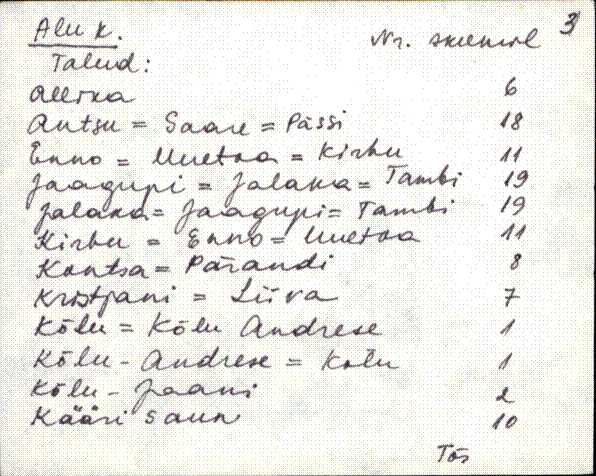 3
Alu k.
Nr. skeemil
Talud:
Allika 6
Antsu = Saare = Pässi 18
Enno = Uuetoa = Kirbu 11
Jaagupi = Jalaka = Tambi 19
Jalaka = Jaagupi = Tambi 19
Kirbu = Enno = Uuetoa 11
Kontsa = Pärandi 8
Kristjani = Liiva 7
Kõlu = Kõlu Andrese 1
Kõlu - Andrese = Kõlu 1
Kõlu - Jaani 2
Kääri saun 10
Tõs